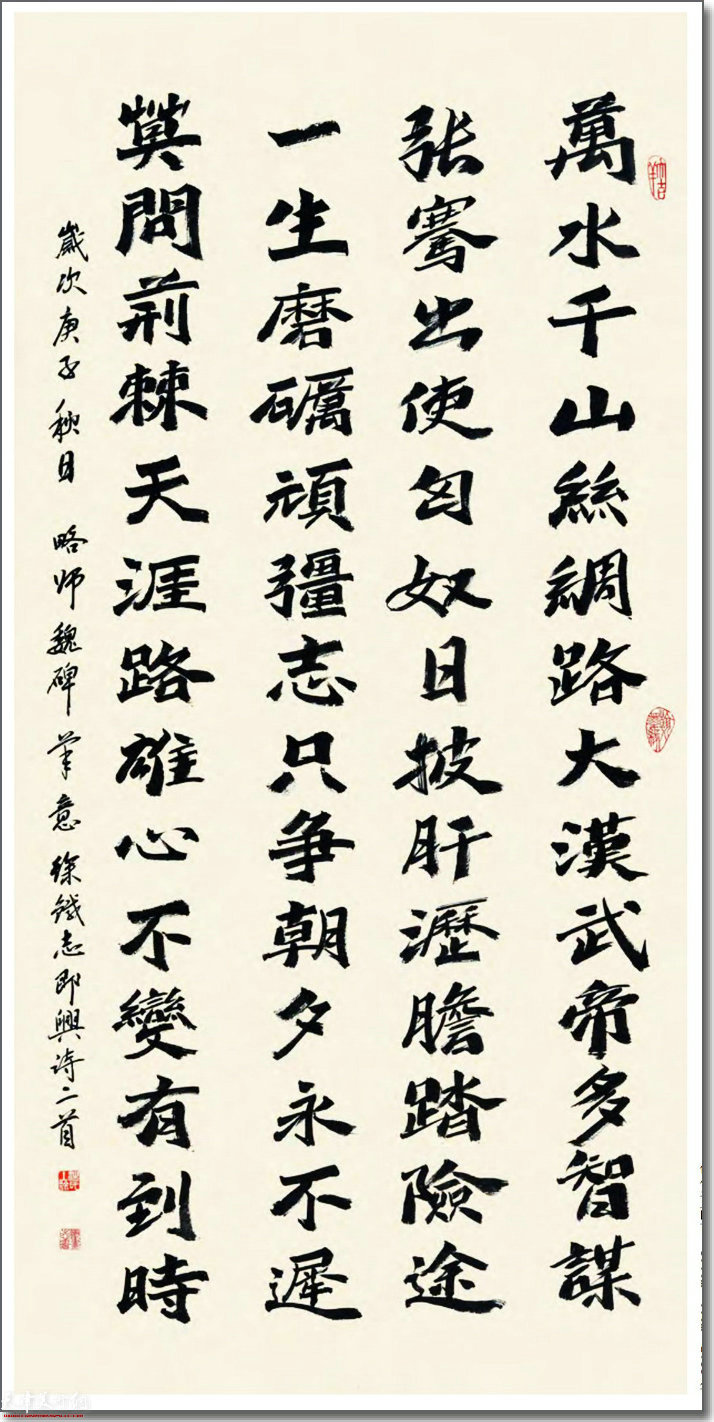 萬水千山絲綢路大漢武帝多智謀
张騫出使匈奴日披肝瀝膽踏險途
一生磨礪頑彊志只爭朝夕永不遲
莫問荊棘天涯路雄心不變有到時
歲次庚子秋日 略师魏碑筆意 徐鐵志即興诗二首